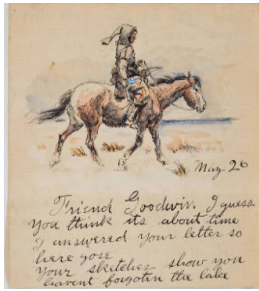 May 26
Friend Goodwin. I guess
you think its about time
I answered your letter so
here gose
Your sketches show you
havent forgotin the lake